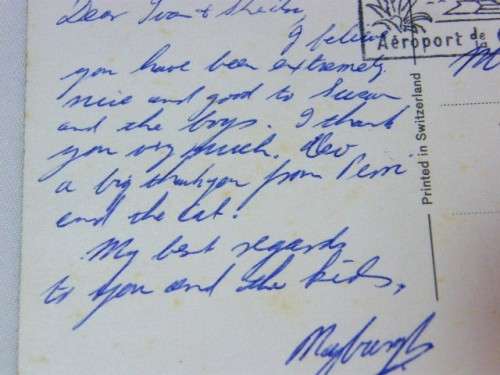 Dear Ivan & Sheila,
I believe
you have been extremely
nice and good to Susan
and the boys. I thank
you very much. Also
a big thankyou from Penn
and the cat!
My best regards
to you and the kids,
Mayburgh
Aéroport de
Printed in Switzerland